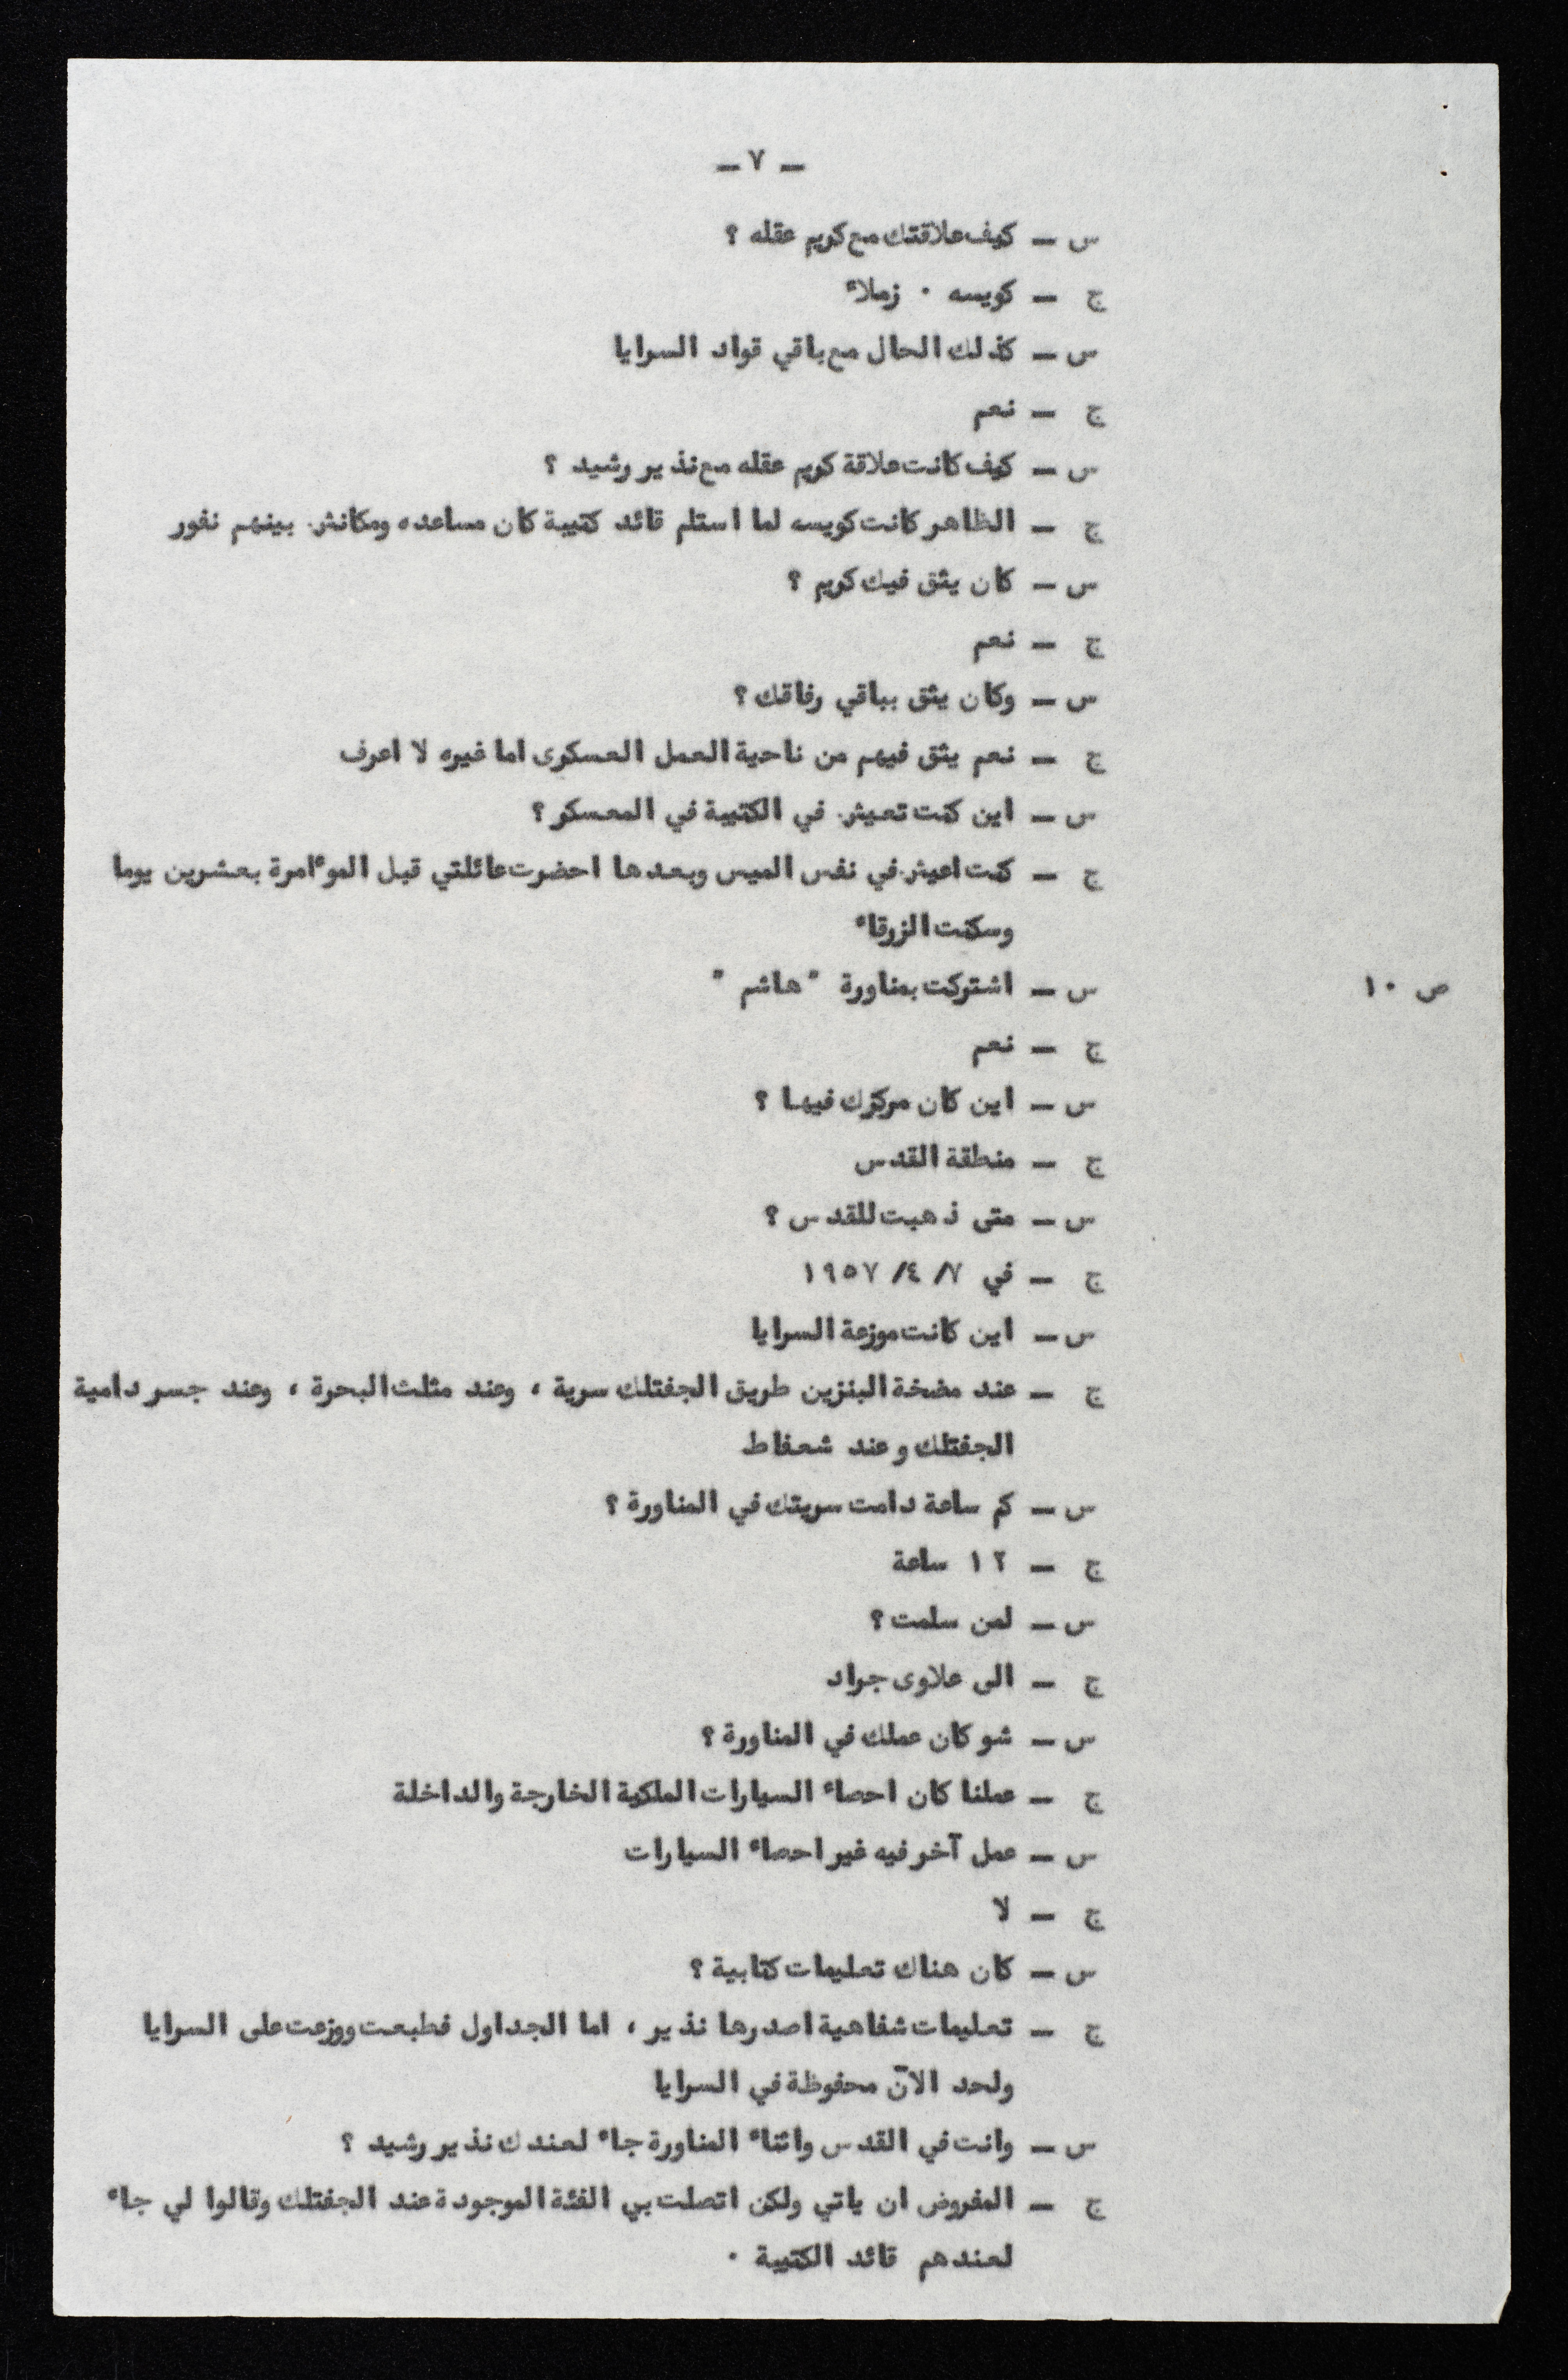 – ٧ –
س – كيف علاقتك مع كريم عقله ؟
ج – كويسه ٠ زملاء
س – كذلك الحال مع باقي قواد السرايا
ج – نعم
س – كيف كانت علاقة كريم عقله مع نذير رشيد ؟
ج – الظاهر كانت كويسه لما استلم قائد كتيبة كان مساعده ومكانش بينهم نفور
س – كان يثق فيك كريم ؟
ج – نعم
س – وكان يثق بباقي رفاقك ؟
ج – نعم يثق فيهم من ناحية العمل العسكرى اما غيره لا اعرف
س – اين كنت تعيش في الكتيبة في المعسكر ؟
ج – كنت اعيش في نفس الميس وبعدها احضرت عائلتي قبل الموءامرة بعشرين يوما
وسكنت الزرقاء
ص ١٠ س – اشتركت بمناورة " هاشم "
ج – نعم
س – اين كان مركزك فيها ؟
ج – منطقة القدس
س – متى ذهبت للقدس ؟
ج – في ٧/ ٤/ ١٩٥٧
س – اين كانت موزعة السرايا
ج – عند مضخة البنزين طريق الجفتلك سرية ، وعند مثلث البحرة ، وعند جسر دامية
الجفتلك وعند شعفاط
س – كم ساعة دامت سريتك في المناورة ؟
ج – ١٢ ساعة
س – لمن سلمت ؟
ج – الى علاوى جراد
س – شو كان عملك في المناورة ؟
ج – عملنا كان احصاء السيارات الملكية الخارجة والداخلة
س – عمل آخر فيه غير احصاء السيارات
ج – لا
س – كان هناك تعليمات كتابية ؟
ج – تعليمات شفاهية اصدرها نذير ، اما الجداول فطبعت ووزعت على السرايا
ولحد الآن محفوظة في السرايا
س – وانت في القدس واثناء المناورة جاء لعندك نذير رشيد ؟
ج – المفروض ان ياتي ولكن اتصلت بي الفئة الموجودة عند الجفتلك وقالوا لي جاء
لعندهم قائد الكتيبة ٠